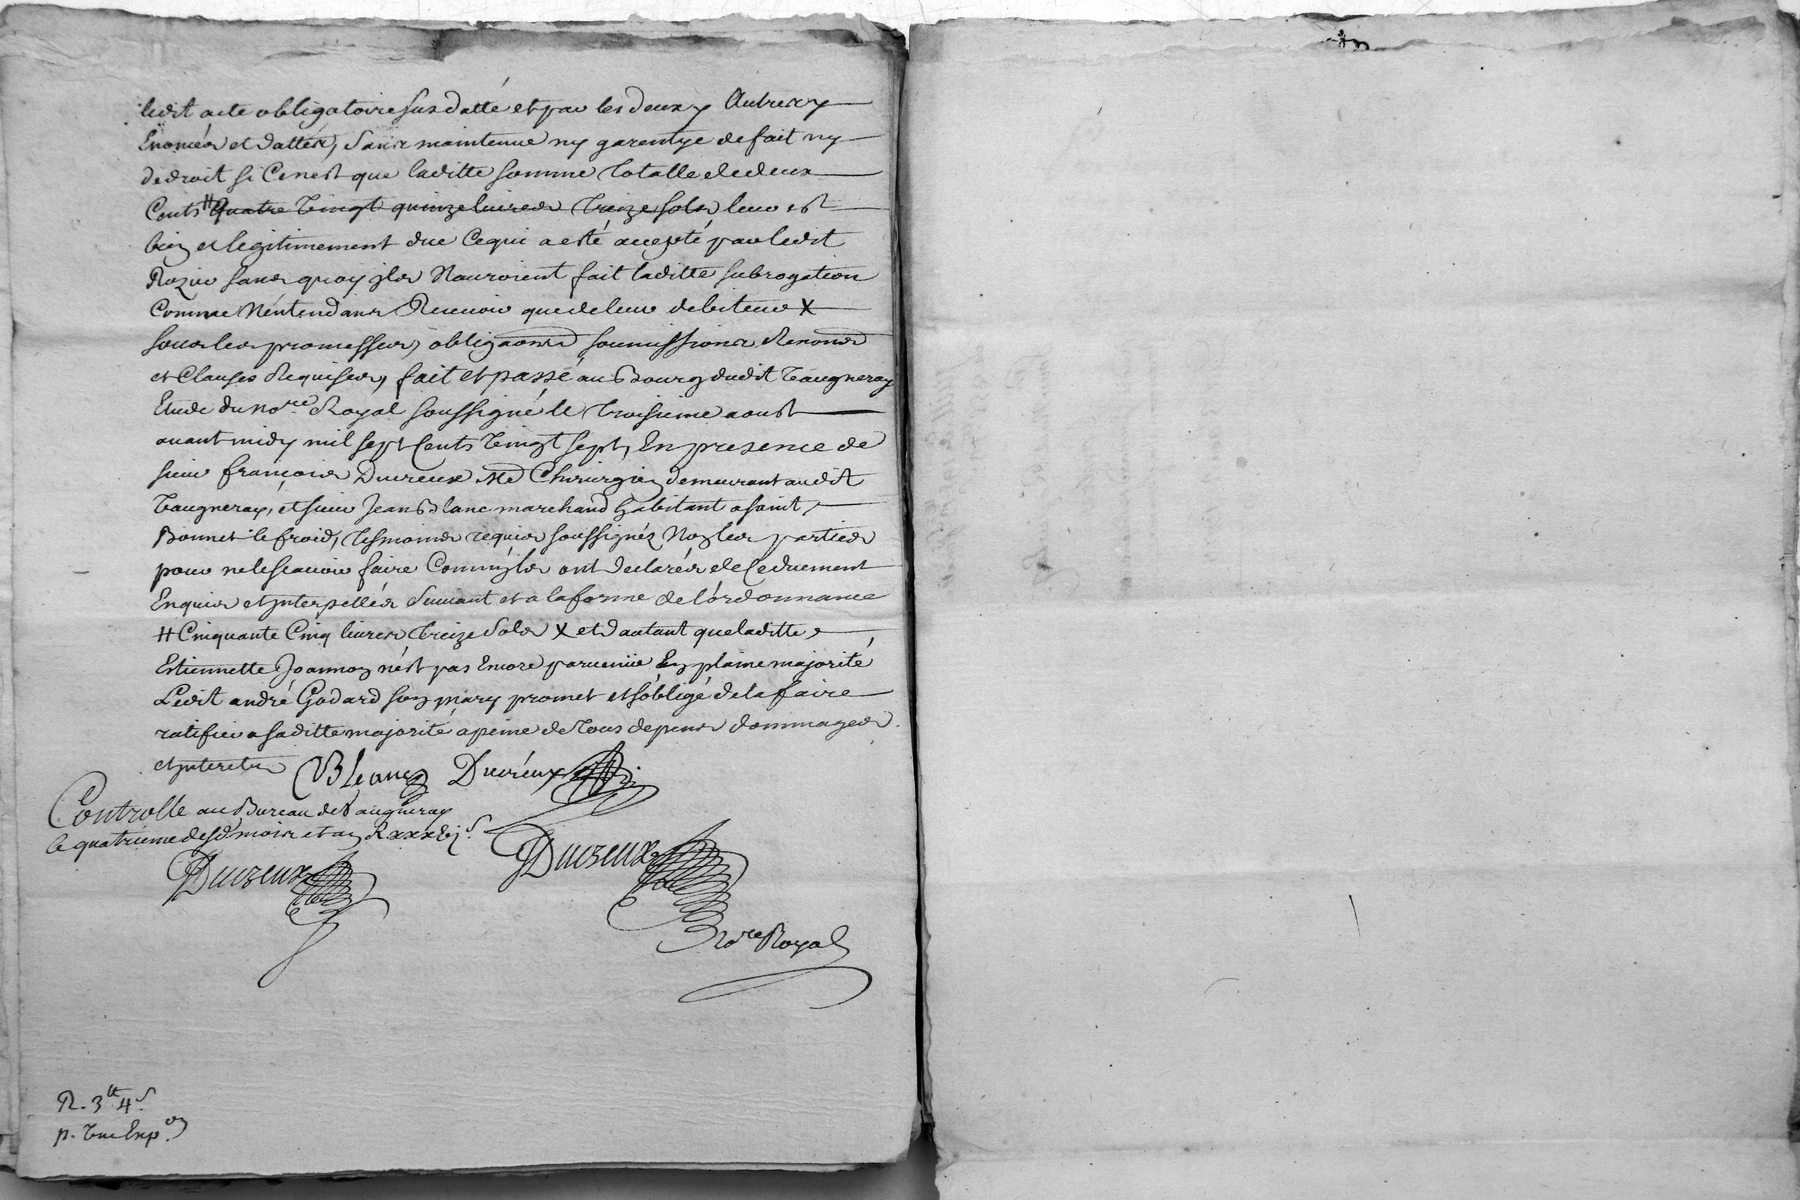 ledit acte obligatoire susdatté et par les deux Autres
Enoncés et dattés, sans maintenue ny garentye de fait ny
de droit si Cenest que laditte somme totalle de deux
Cents # quatre vingt quinze livres treize sols leur est
bien et legitimement due Cequi a esté accepté par ledit
Rozier sans quoy ils Nauroient fait laditte subrogation
Comme Néntendans Recevoir que de leur debiteur X
sous les promesses, obligaons soumissions Renons
et Clauses Requises, fait et passé au Bourg dudit Vaugneray
Etude du nore Royal soussigné le troisieme aoust
avant midy mil sept Cents vingt sept, En presence de
sieur françois Ducreux Me Chirurgien demeurant audit
Vaugneray, et sieur Jean Blanc marchand habitant a saint
Bonnet le froid, tesmoins requis soussignéz Non les parties
pour ne le scavoir faire Comm'ils ont declarés de Ce duement
Enquis et interpellés Suivant et a la forme de l'ordonnance
# Cinquante Cinq livres treize Sols X et d'autant que laditte
Estiennette Joannon n'est pas Encore parvenüe En plaine majorité
Ledit andré Godard son mary promet et s'obligé de la faire
ratifier a saditte majorité a peine de tous depens dommages
et interets Blanc Ducreux
Controllé au Bureau de Vaugneray
le quatrieme desd. mois et an R xxxvj s.
Ducreux Ducreux
nore Royal
R. 3tt 4s.
p. une Expon